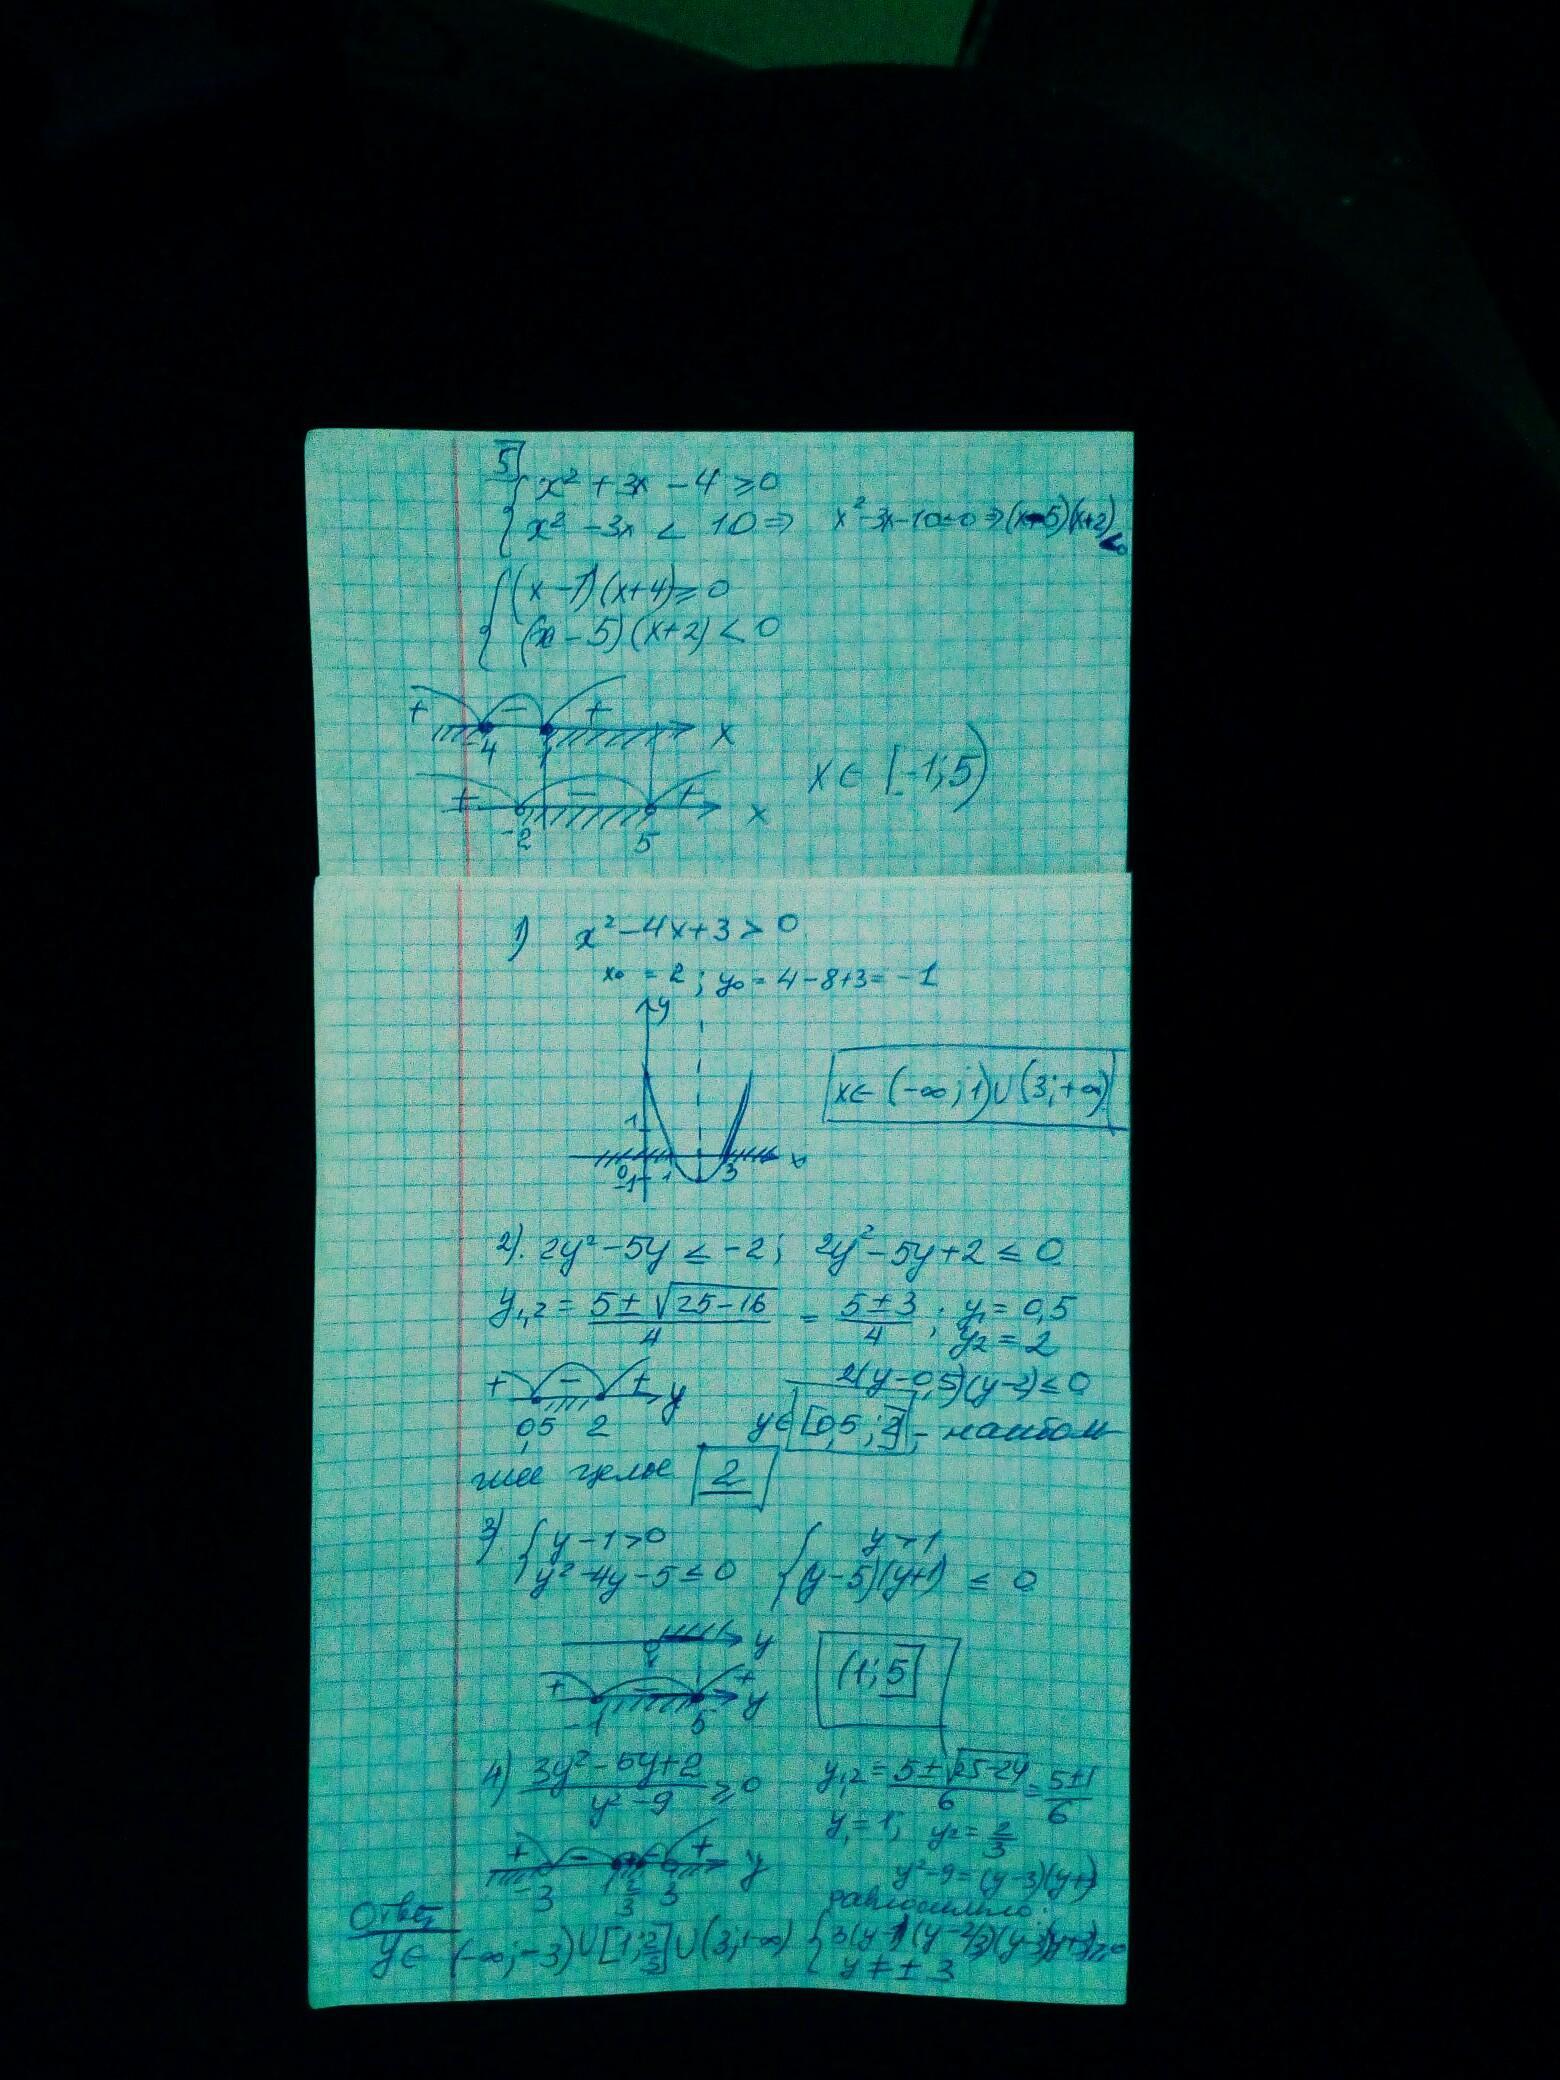 5
x² + 3x - 4 ≥ 0
x² - 3x < 10 ⇒ x² - 3x - 10 < 0 ⇒ (x - 5)(x + 2) < 0
(x - 1)(x + 4) ≥ 0
(x - 5)(x + 2) < 0
+ - +
-4 1 x
x ∈ [-1; 5)
+ - +
-2 5 x
1) x² - 4x + 3 > 0
x₀ = 2 ; y₀ = 4 - 8 + 3 = -1
y
x ∈ (-∞; 1) ∪ (3; +∞)
1
0 1 3 x
-1
2). 2y² - 5y ≤ -2 ; 2y² - 5y + 2 ≤ 0
y₁,₂ = (5 ± √(25 - 16))/4 = (5 ± 3)/4 ; y₁ = 0,5
y₂ = 2
+ - + y
2(y - 0,5)(y - 2) ≤ 0
0,5 2
y ∈ [0,5 ; 2] - наиболь
шее целое 2
3) y - 1 > 0 y > 1
y² - 4y - 5 ≤ 0 (y - 5)(y + 1) ≤ 0
1 y
(1; 5]
+ - + y
-1 5
4) (3y² - 5y + 2)/(y² - 9) ≥ 0 y₁,₂ = (5 ± √(25 - 24))/6 = (5 ± 1)/6
y₁ = 1 ; y₂ = 2/3
+ - + - + y
-3 1 2/3 3
y² - 9 = (y - 3)(y + 3)
равносильно:
Ответ
y ∈ (-∞; -3) ∪ [1; 2/3] ∪ (3; +∞) 3(y - 1)(y - 2/3)(y - 3)(y + 3) ≥ 0
y ≠ ± 3